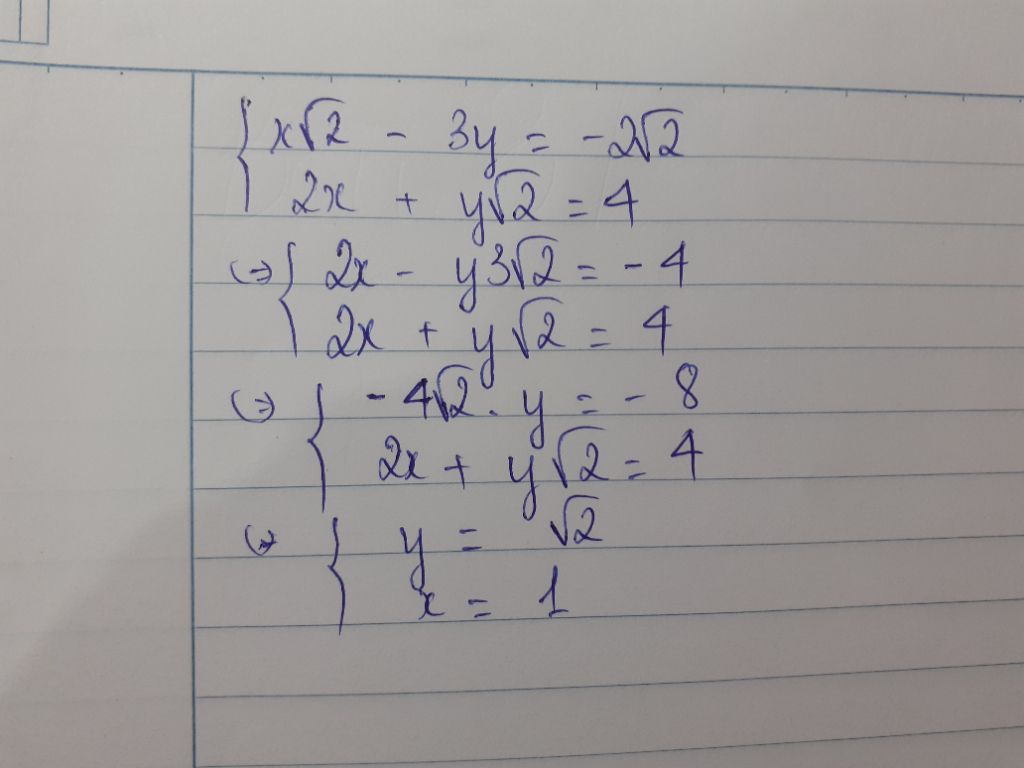 { x√2 - 3y = -2√2
2x + y√2 = 4
(→) { 2x - y3√2 = -4
2x + y√2 = 4
(→) { -4√2 . y = -8
2x + y√2 = 4
(→) { y = √2
x = 1